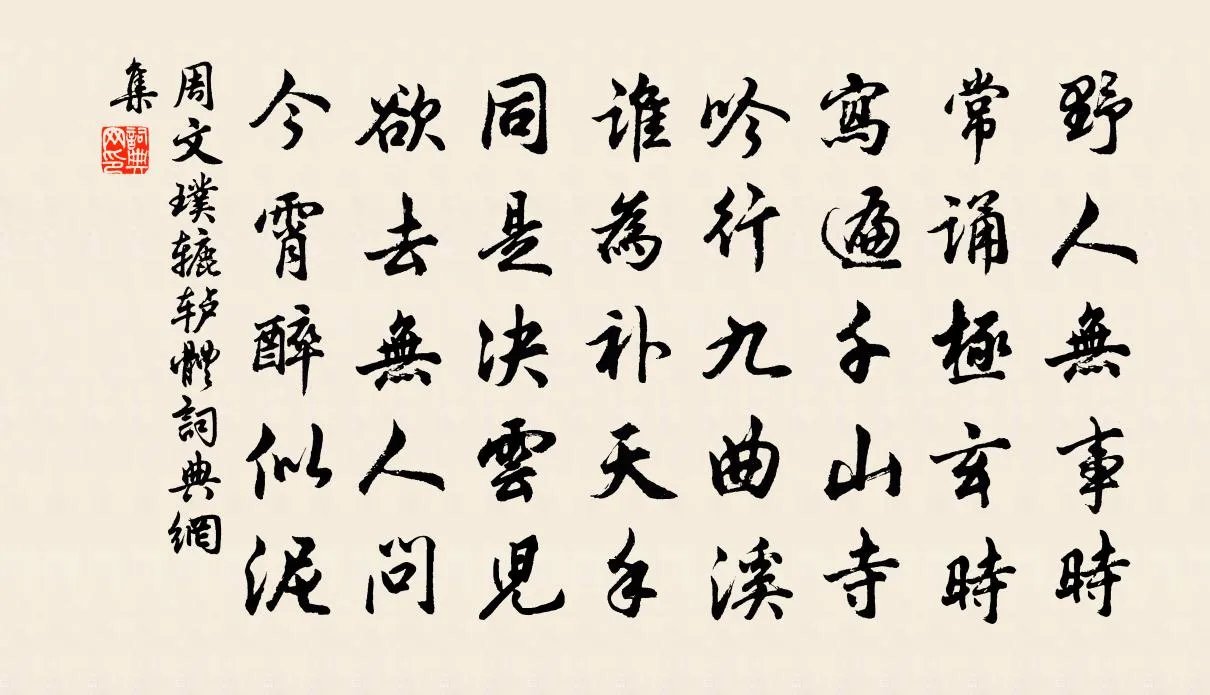 野人無事時
常誦極玄時
寫遍千山寺
吟行九曲溪
誰為补天手
同是決雲兒
欲去無人問
今宵醉似泥
周文璞辘轳體詞典網
集
詞典
网印